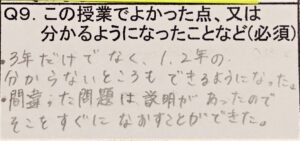 Q9. この授業でよかった点、又は
分かるようになったことなど(必須)
・3年だけでなく、1,2年の
分からないところもできるようになった。
・間違った問題は説明があったので
そこをすぐになおすことができた。